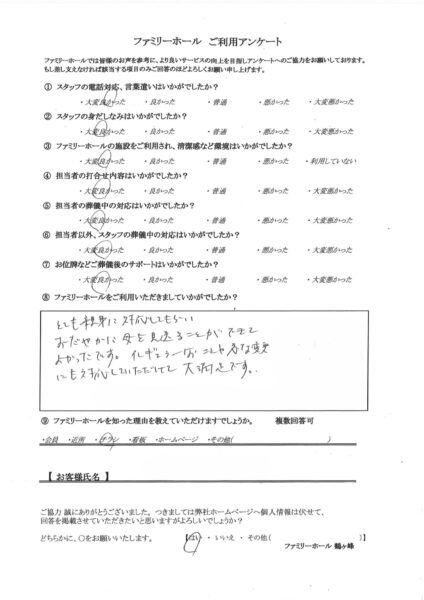 ファミリーホール ご利用アンケート
ファミリーホールでは皆様のお声を参考に、より良いサービスの向上を目指しアンケートへのご協力をお願いしております。
もし差し支えなければ該当する項目のみご回答のほどよろしくお願い申し上げます。
① スタッフの電話対応、言葉遣いはいかがでしたか？
・大変良かった ・良かった ・普通 ・悪かった ・大変悪かった
② スタッフの身だしなみはいかがでしたか？
・大変良かった ・良かった ・普通 ・悪かった ・大変悪かった
③ ファミリーホールの施設をご利用され、清潔感など環境はいかがでしたか？
・大変良かった ・良かった ・普通 ・悪かった ・利用していない
④ 担当者の打合せ内容はいかがでしたか？
・大変良かった ・良かった ・普通 ・悪かった ・大変悪かった
⑤ 担当者の葬儀中の対応はいかがでしたか？
・大変良かった ・良かった ・普通 ・悪かった ・大変悪かった
⑥ 担当者以外、スタッフの葬儀中の対応はいかがでしたか？
・大変良かった ・良かった ・普通 ・悪かった ・大変悪かった
⑦ お位牌などご葬儀後のサポートはいかがでしたか？
・大変良かった ・良かった ・普通 ・悪かった ・大変悪かった
⑧ ファミリーホールをご利用いただきましていかがでしたか？
とても親身に対応してもらい
おだやかに母を見送ることができて
よかったです。
にも対応していただけて大満足です。
⑨ ファミリーホールを知った理由を教えていただけますでしょうか。 複数回答可
・会員 ・近所 ・チラシ ・看板 ・ホームページ ・その他( )
【 お客様氏名 】
ご協力 誠にありがとうございました。つきましては弊社ホームページへ個人情報は伏せて、
回答を掲載させていただきたいと思いますがよろしいでしょうか？
どちらかに、○をお願いします。 【はい ・ いいえ ・ その他( )】
ファミリーホール 鶴ヶ峰